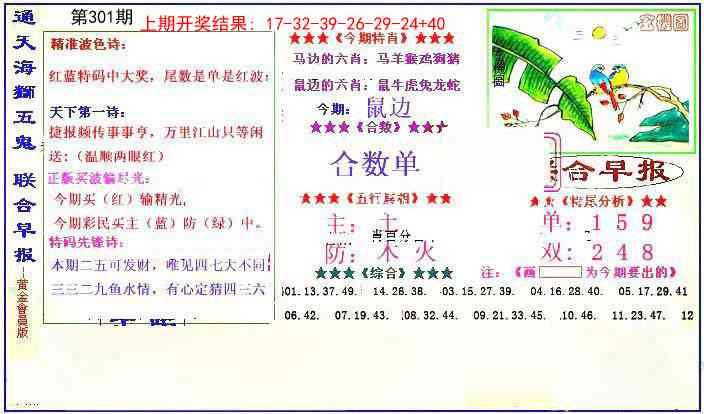 通天海狮五鬼 联合早报
—黄金會員版
第301期
上期开奖结果：17-32-39-26-29-24+40
精准波色诗：
红蓝特码中大奖，尾数是单是红波；
天下第一诗：
捷报频传事事亨，万里江山只等闲
送：（温顺两眼红）
正版买波输尽光：
今期买（红）输精光，
今期彩民买主（蓝）防（绿）中。
特码先锋诗：
本期二五可发财，唯见四七大不同
三三二九鱼水情，有心定猜四三六
★★★《今期特肖》★★★
马边的六肖：马羊猴鸡狗猪
鼠边的六肖：鼠牛虎兔龙蛇
今期：鼠边
★★★《合数》★★★
合数单
★★★《五行属相》★★★
主：土
防：木 火
★★★《综合》★★★
玄機圖
合早报
★★《特尾分析》★★
单：159
双：248
注：《画 为今期要出的》
01.13.37.49. 14.26.38. 03.15.27.39. 04.16.28.40. 05.17.29.41
06.42. 07.19.43. 08.32.44. 09.21.33.45. 10.46. 11.23.47. 12